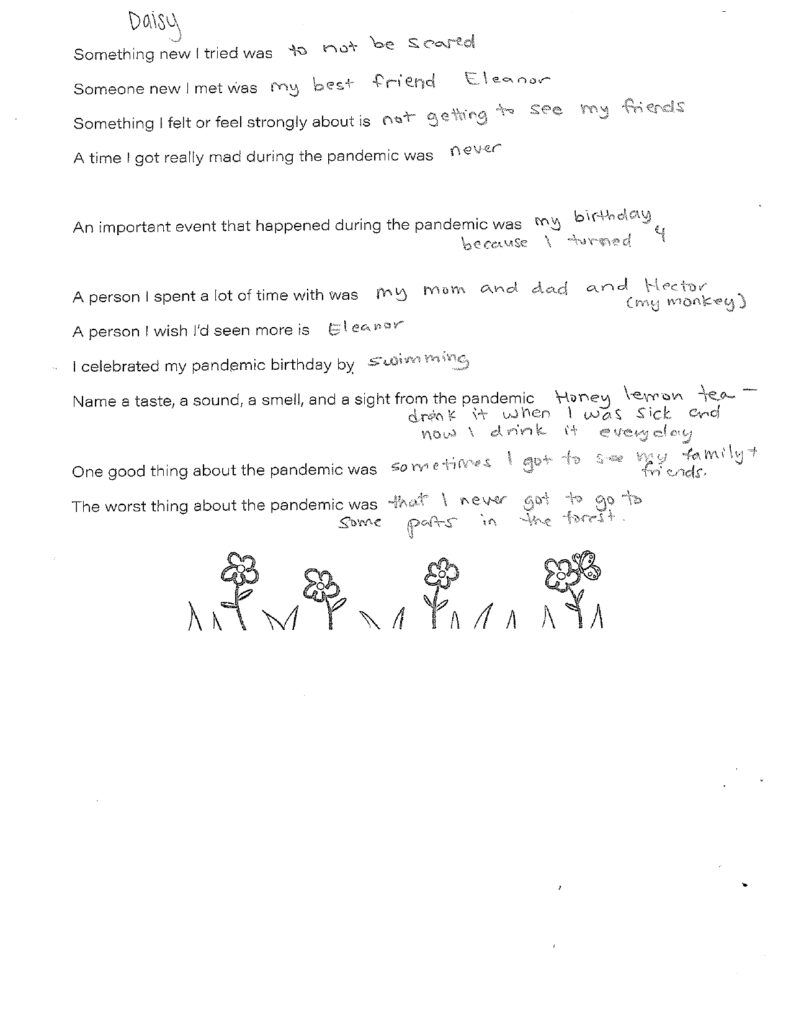 Daisy
Something new I tried was to not be scared
Someone new I met was my best friend Eleanor
Something I felt or feel strongly about is not getting to see my friends
A time I got really mad during the pandemic was never
An important event that happened during the pandemic was my birthday
because I turned 4
A person I spent a lot of time with was my mom and dad and Hector
(my monkey)
A person I wish I'd seen more is Eleanor
I celebrated my pandemic birthday by swimming
Name a taste, a sound, a smell, and a sight from the pandemic Honey lemon tea –
drank it when I was sick and
now I drink it everyday
One good thing about the pandemic was sometimes I got to see my family +
friends.
The worst thing about the pandemic was that I never got to go to
some parts in the forrest.